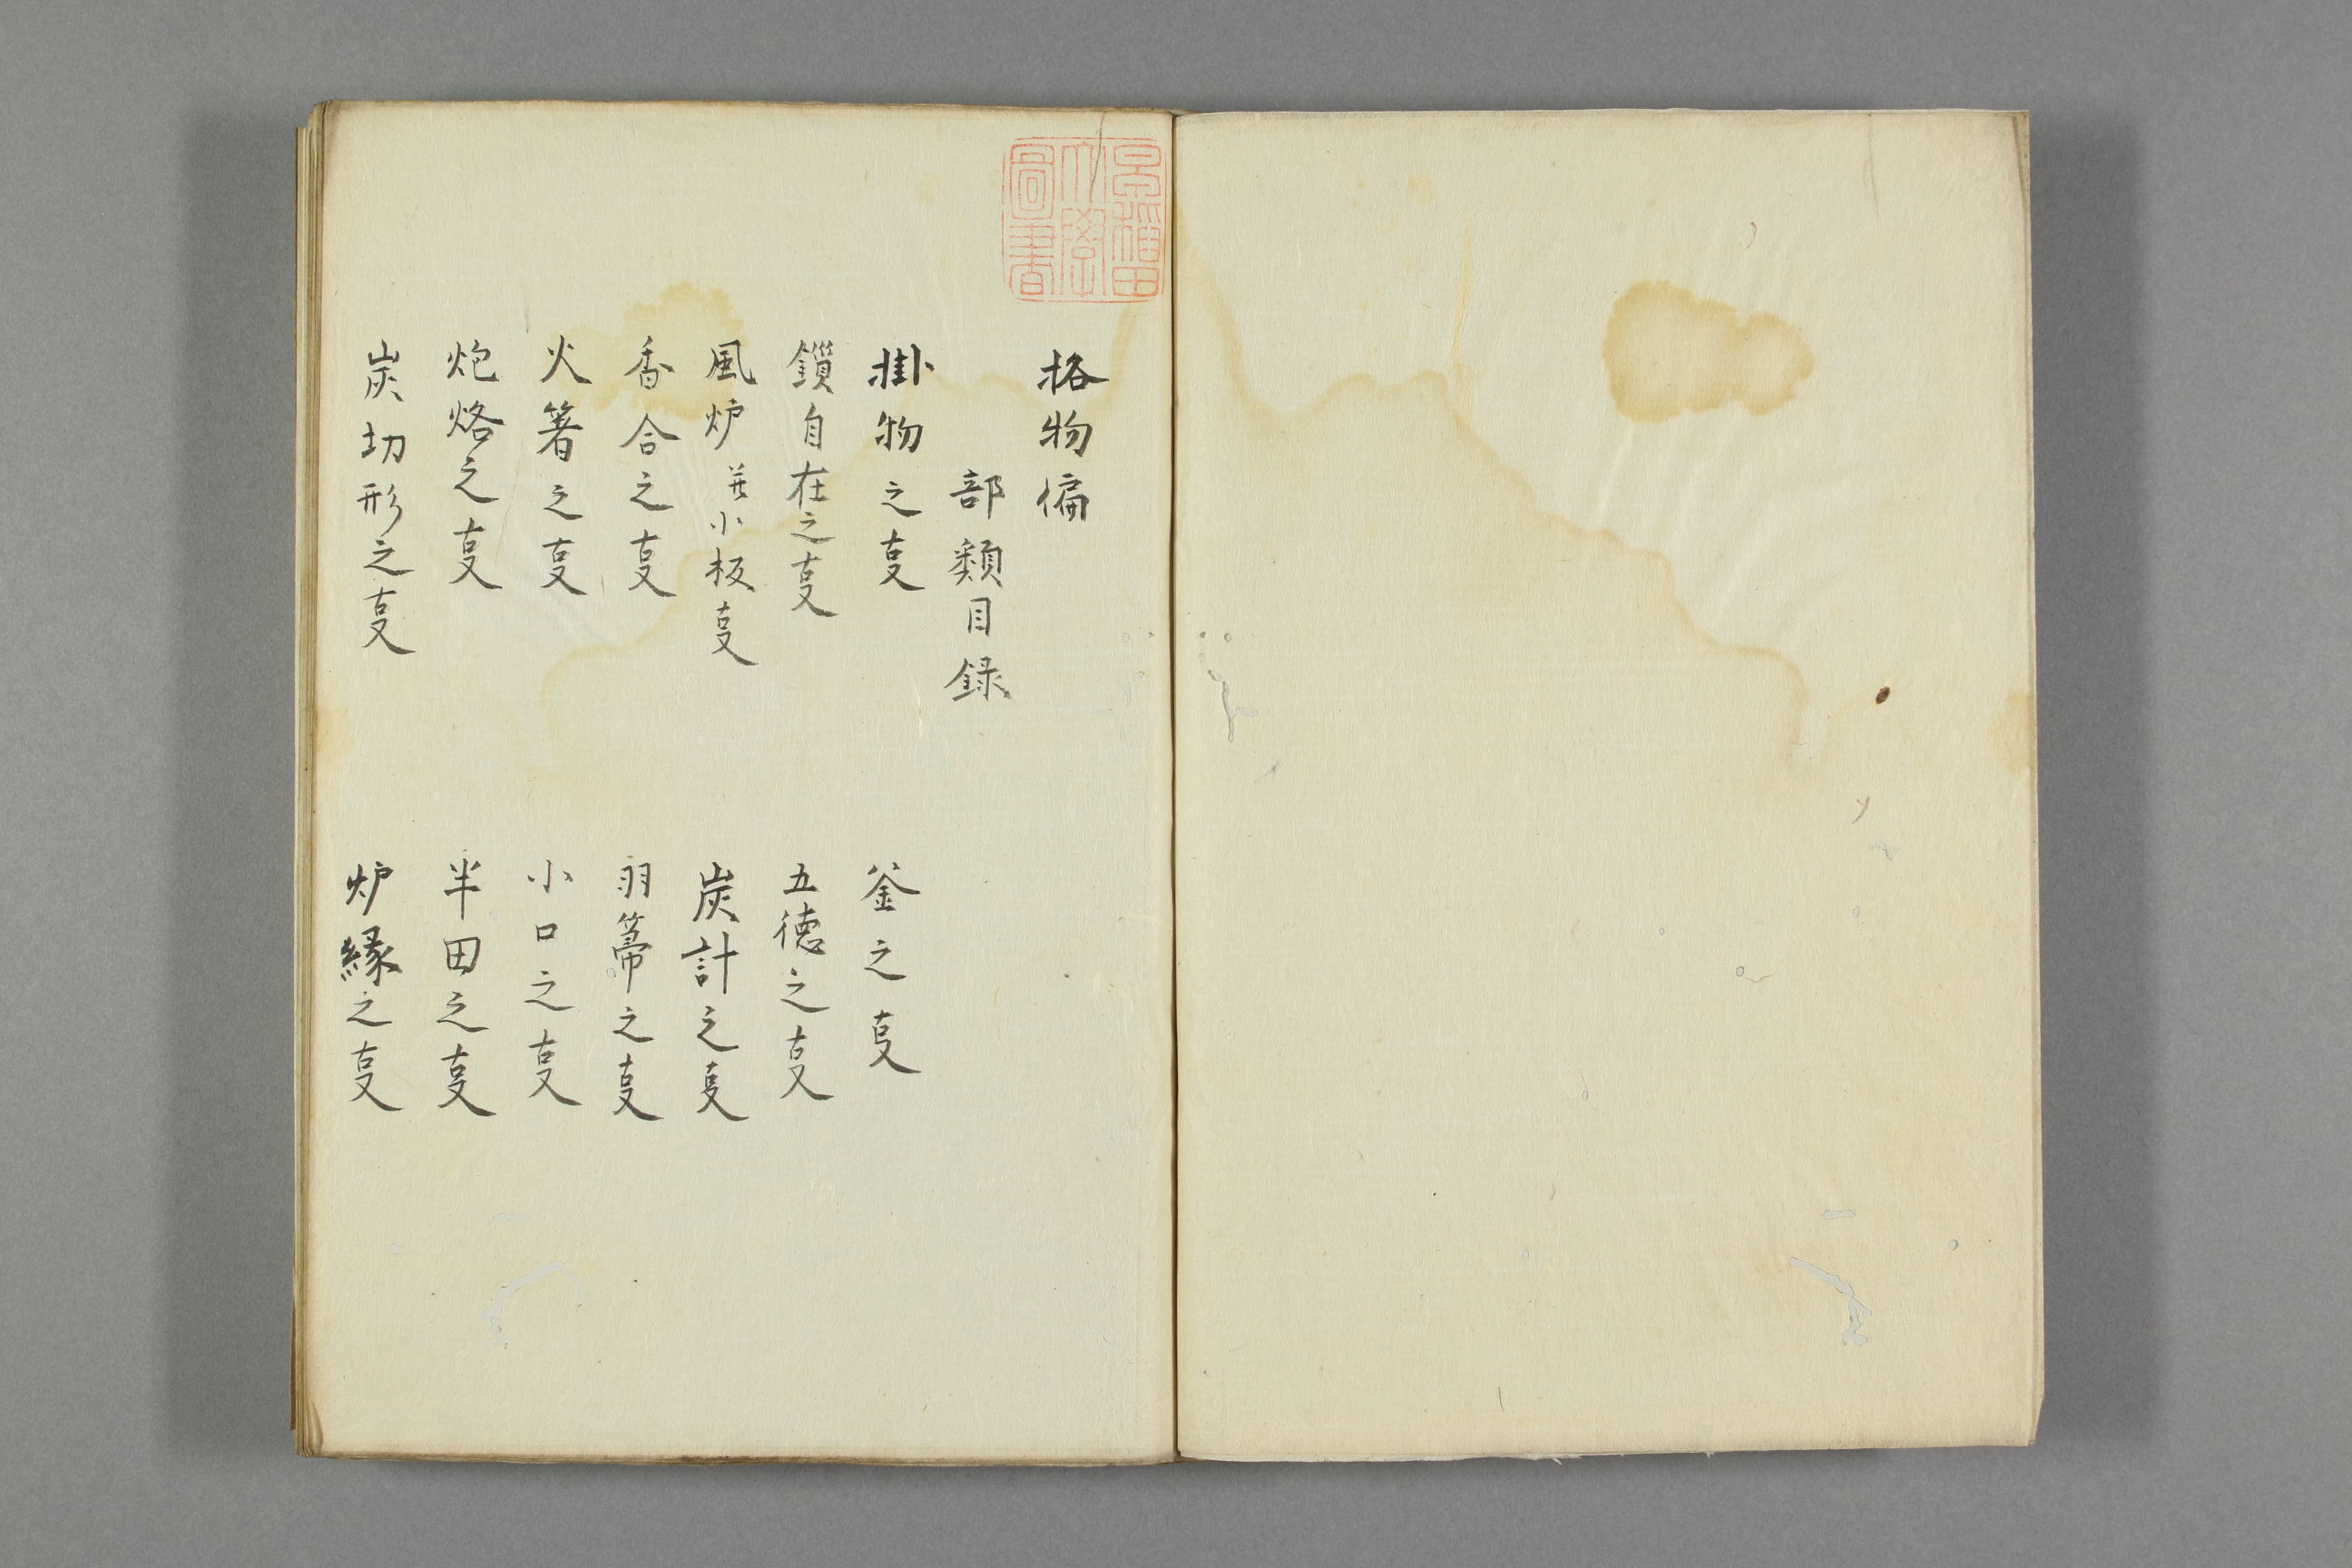 早稲田
大学
圖書
格物偏
部類目録
掛物之㕝
釜之㕝
鏁自在之㕝
五徳之㕝
風炉并小板㕝
炭計之㕝
香合之㕝
羽箒之㕝
火箸之㕝
小口之㕝
炮烙之㕝
半田之㕝
炭切形之㕝
炉縁之㕝